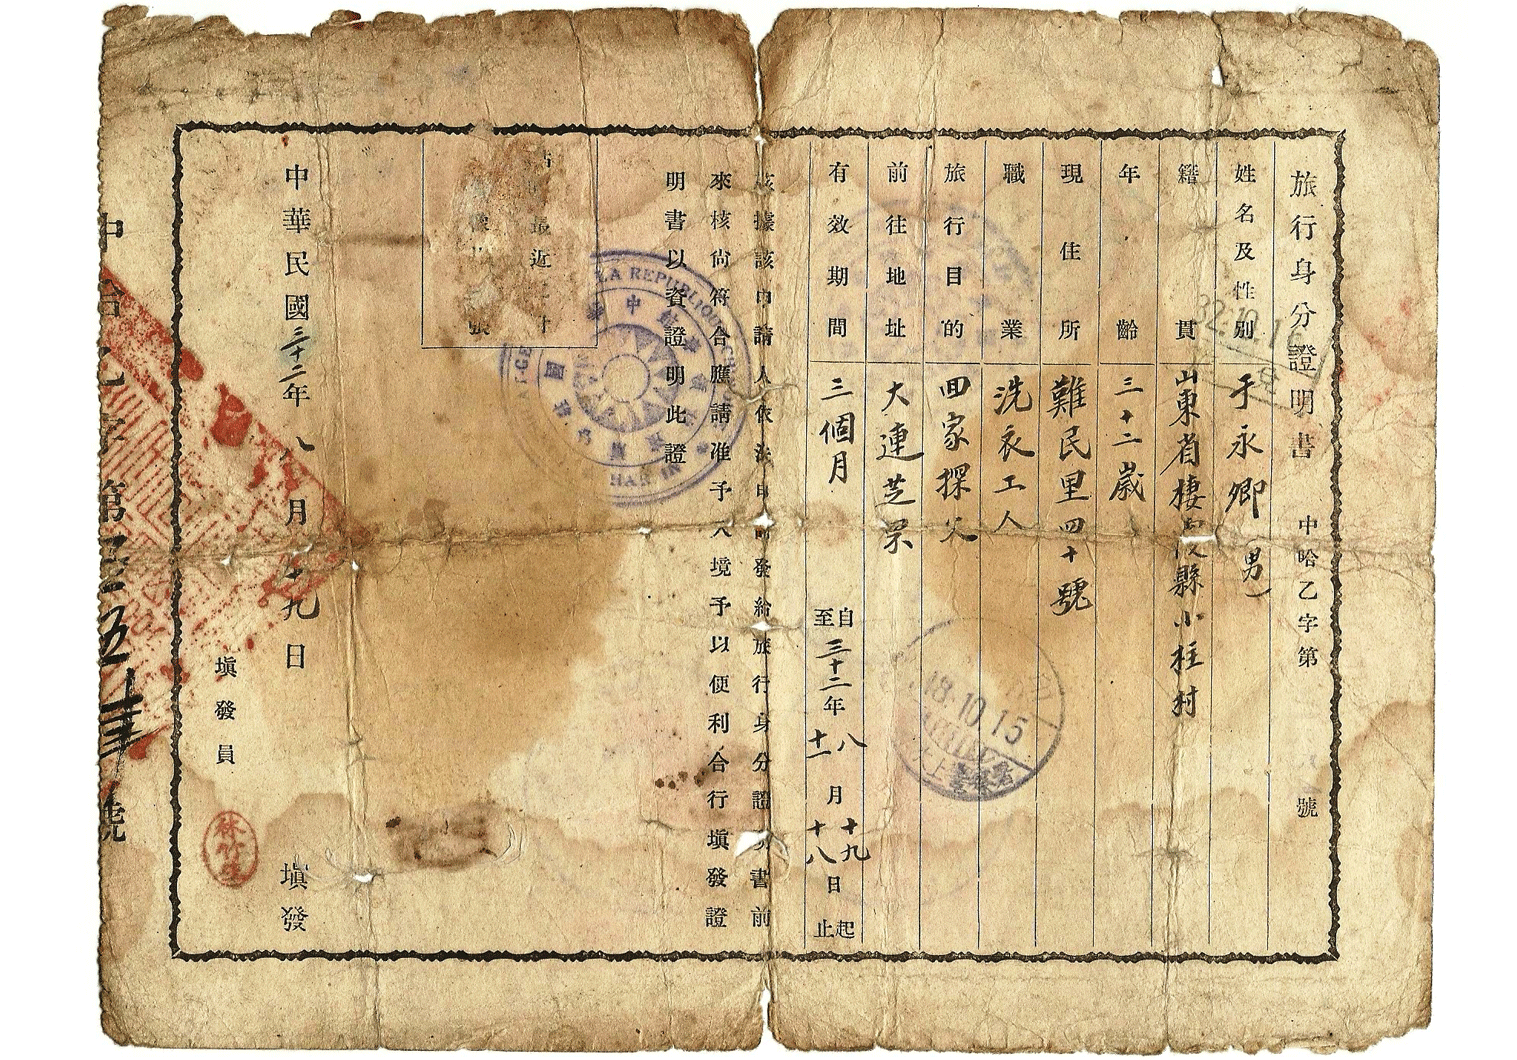 旅行身分證明書 中哈乙字第 號
姓名及性別 于永卿(男)
籍貫 山東省棲霞縣小柱村
年齡 三十二歲
現住所 難民里四十號
職業 洗衣工人
旅行目的 回家探父
前往地址 大連芝罘
有效期間 三個月 自三十二年八月十九日起
至十一月十八日止
茲據該申請人依法申請發給旅行身分證明書前
來核尚符合應請准予入境予以便利合行塡發證
明書以資證明此證
最近
中華民國三十二年八月十九日 塡發
塡發員
林竹
哈乙字第 五 號
LA REPUBLIQUE
HARBIN
中華民國
32.10.1
18.10.15
水上警察署